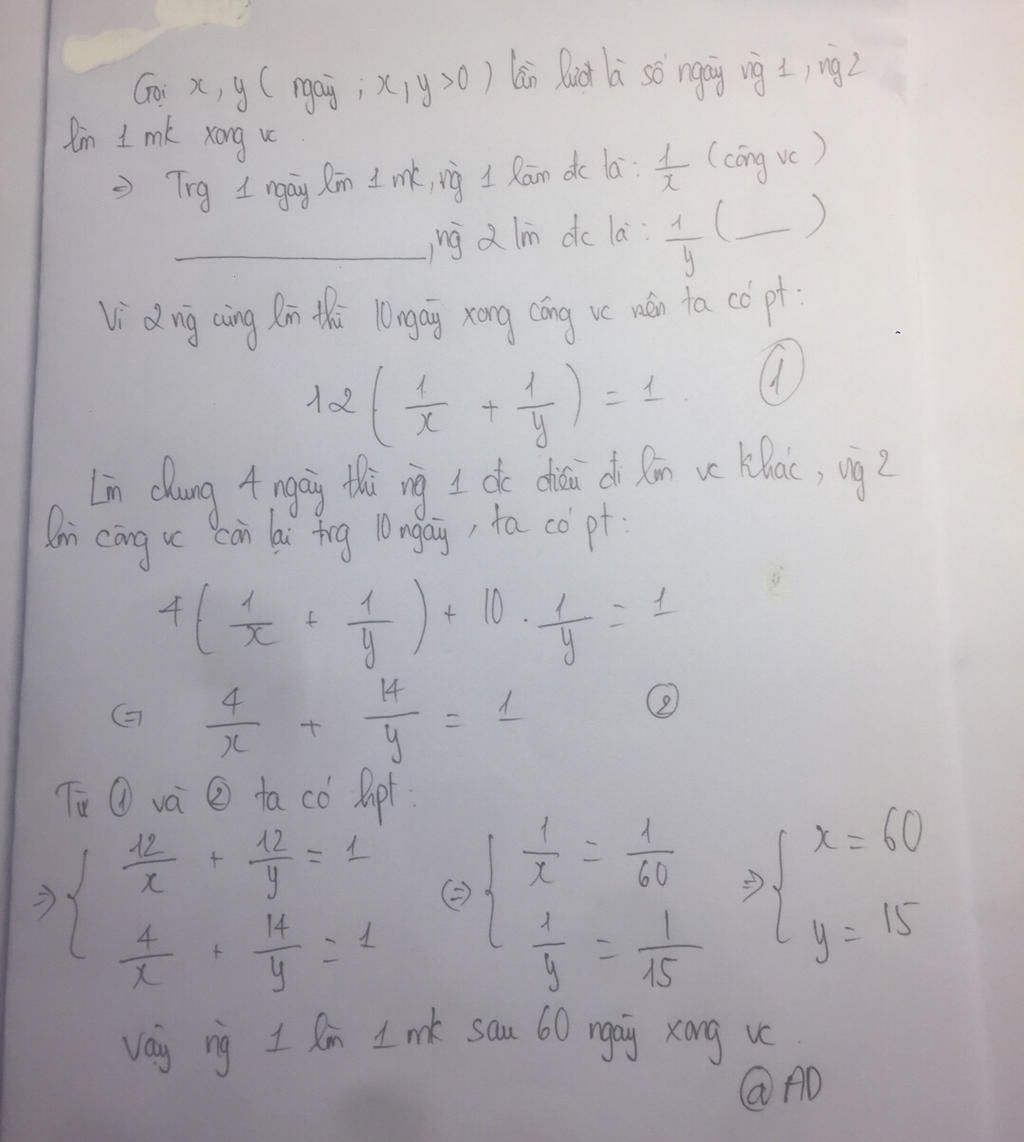 Gọi x, y ( ngày ; x, y >0 ) lần lượt là số ngày ng 1, ng 2
lm 1 mk xong vc .
=> Trg 1 ngày lm 1 mk, ng 1 làm đc là: 1/x (công vc)
____________, ng 2 lm đc là: 1/y ( __ )
Vì 2 ng cùng lm thì 10 ngày xong công vc nên ta có pt:
12 ( 1/x + 1/y ) = 1 . ①
Lm chung 4 ngày thì ng 1 đc điều đi lm vc khác, ng 2
lm công vc còn lại trg 10 ngày, ta có pt:
4 ( 1/x + 1/y ) + 10 . 1/y = 1
<=> 4/x + 14/y = 1 ②
Từ ① và ② ta có hpt:
=> { 12/x + 12/y = 1 <=> { 1/x = 1/60 => { x = 60
4/x + 14/y = 1 1/y = 1/15 y = 15
Vậy ng 1 lm 1 mk sau 60 ngày xong vc .
@AD